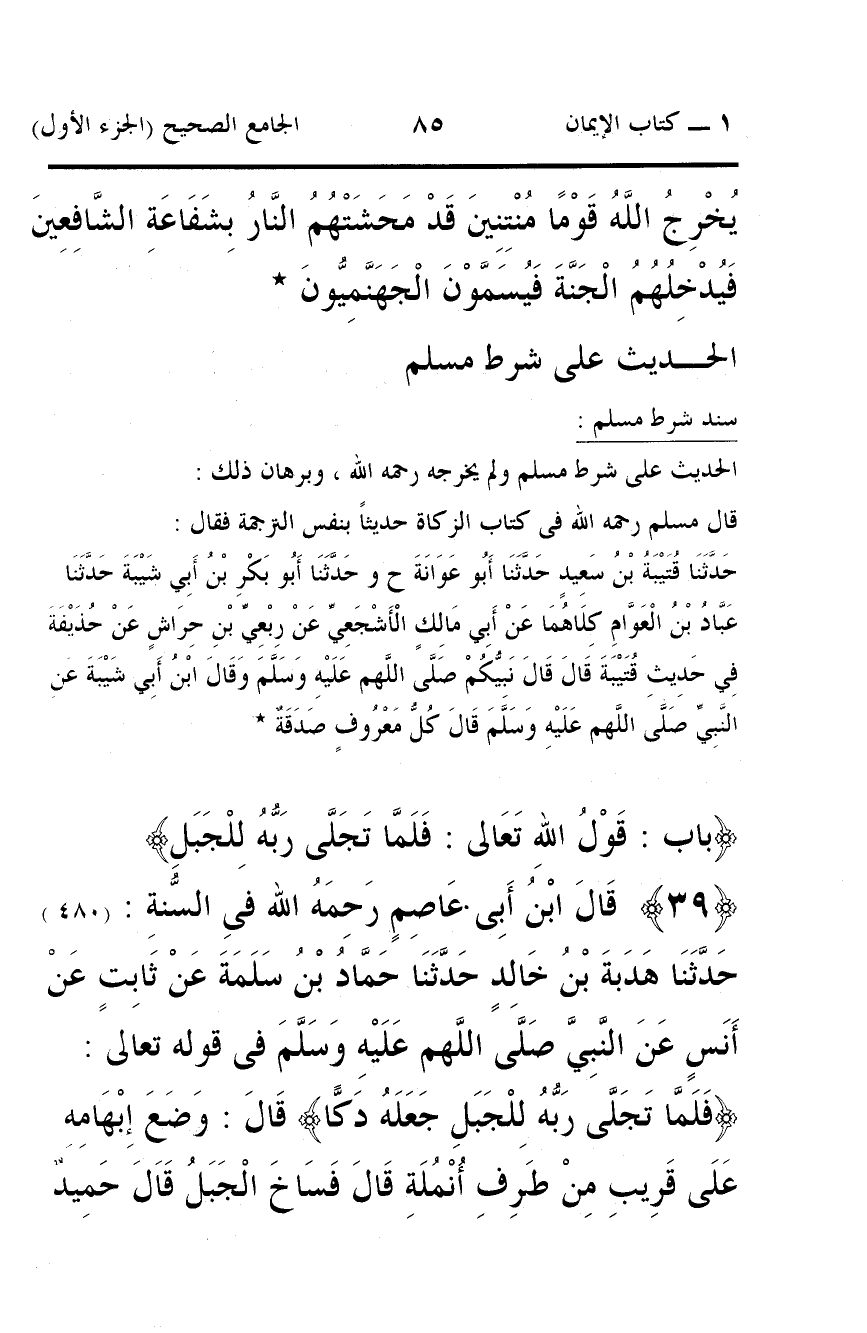 ١ ــ كتاب الإيمان ٨٥ الجامع الصحيح (الجزء الأول)
يُخْرِجُ اللَّهُ قَوْمًا مُنْتِنِينَ قَدْ مَحَشَتْهُمُ النَّارُ بِشَفَاعَةِ الشَّافِعِينَ
فَيُدْخِلُهُمُ الْجَنَّةَ فَيُسَمَّوْنَ الْجَهَنَّمِيُّونَ *
الحـــديث على شرط مسلم
سند شرط مسلم :
الحديث على شرط مسلم ولم يخرجه رحمه الله ، وبرهان ذلك :
قال مسلم رحمه الله فى كتاب الزكاة حديثاً بنفس الترجمة فقال :
حَدَّثَنَا قُتَيْبَةُ بْنُ سَعِيدٍ حَدَّثَنَا أَبُو عَوَانَةَ ح و حَدَّثَنَا أَبُو بَكْرِ بْنُ أَبِي شَيْبَةَ حَدَّثَنَا
عَبَّادُ بْنُ الْعَوَّامِ كِلَاهُمَا عَنْ أَبِي مَالِكٍ الْأَشْجَعِيِّ عَنْ رِبْعِيِّ بْنِ حِرَاشٍ عَنْ حُذَيْفَةَ
فِي حَدِيثِ قُتَيْبَةَ قَالَ قَالَ نَبِيُّكُمْ صَلَّى اللهم عَلَيْهِ وَسَلَّمَ وَقَالَ ابْنُ أَبِي شَيْبَةَ عَنِ
النَّبِيِّ صَلَّى اللهم عَلَيْهِ وَسَلَّمَ قَالَ كُلُّ مَعْرُوفٍ صَدَقَةٌ *
﴿باب : قَوْلُ اللهِ تَعَالى : فَلَمَّا تَجَلَّى رَبُّهُ لِلْجَبَلِ﴾
﴿٣٩﴾ قَالَ ابْنُ أَبِى عَاصِمٍ رَحِمَهُ الله فى السُّنةِ : (٤٨٠)
حَدَّثَنَا هَدَبَةَ بْنُ خَالِدٍ حَدَّثَنَا حَمَّادُ بْنُ سَلَمَةَ عَنْ ثَابِتٍ عَنْ
أَنَسٍ عَنَ النَّبِيَّ صَلَّى اللَّهم عَلَيْهِ وَسَلَّمَ فى قوله تعالى :
﴿فَلَمَّا تَجَلَّى رَبُّهُ لِلْجَبَلِ جَعَلَهُ دَكًّا﴾ قَالَ : وَضَعَ إِبْهَامِهِ
عَلَى قَرِيبٍ مِنْ طَرِفِ أُنْمُلَةِ قَالَ فَسَاخَ الْجَبَلُ قَالَ حَمِيدٌ